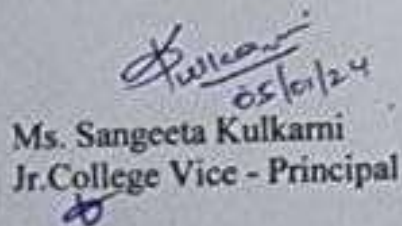 Kulkarni
05/01/24
Ms. Sangeeta Kulkarni
Jr.College Vice - Principal